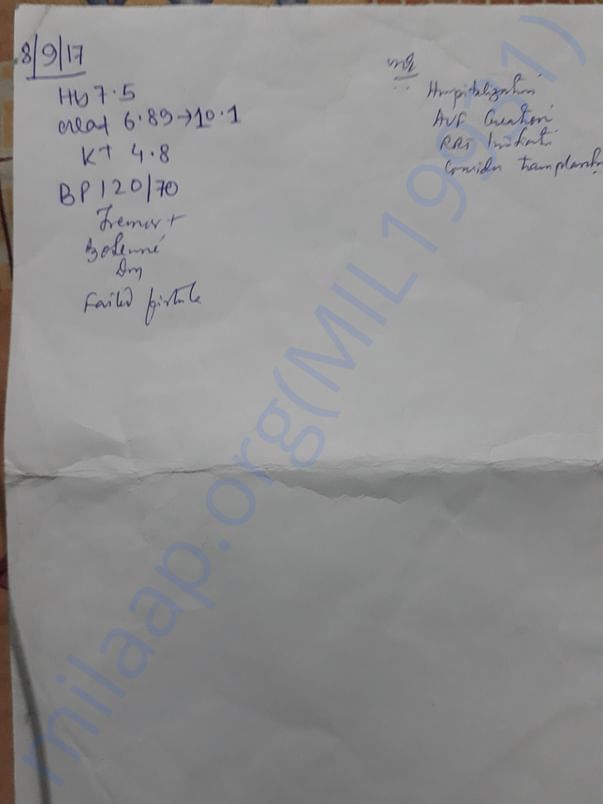 8/9/17
Hb 7.5
creat 6.89→10.1
K+ 4.8
BP 120/70
Tremor +
Failed fistula
Hospitalization
AVF Creation
RRT Initiation
Consider transplantation
milaap.org(MIL19931)